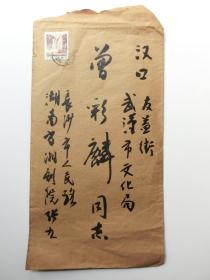 汉口
友益街
武汉市文化局
曾彩麟同志
长沙市人民路
湖南省湘剧院张九